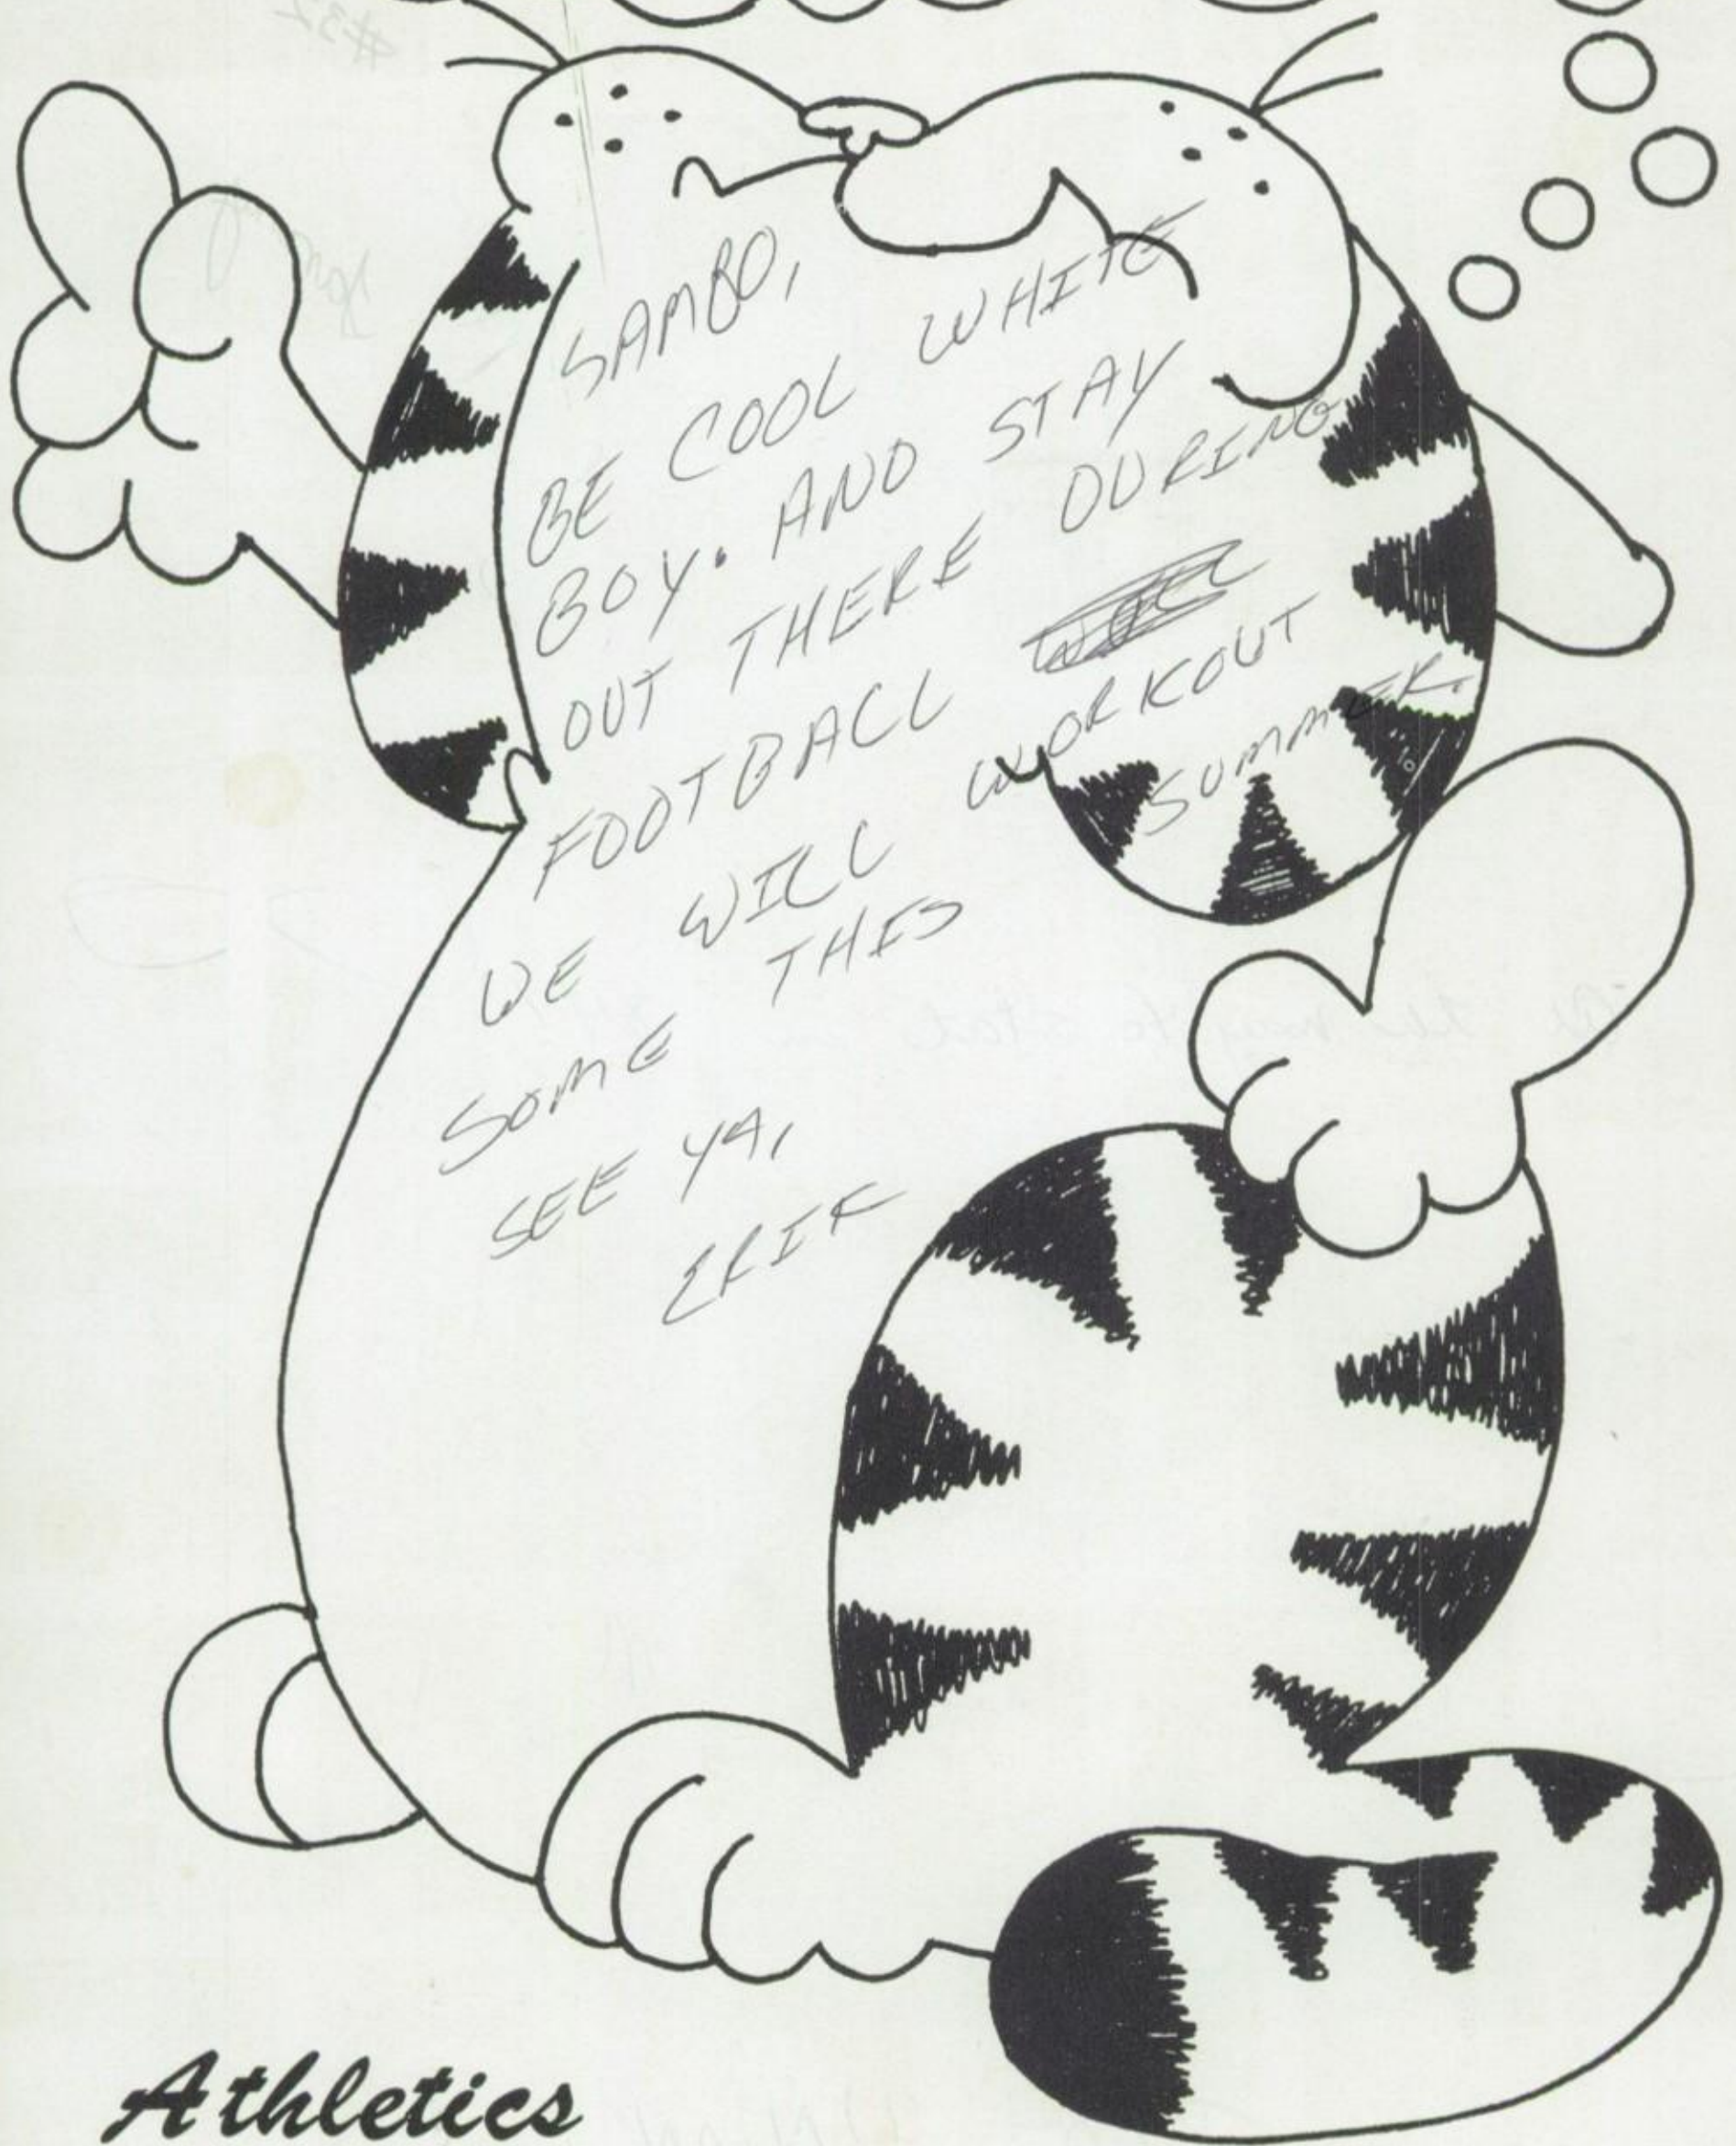 SAMBO,
BE COOL WHITE
BOY. AND STAY
OUT THERE DURING
FOOTBALL
WE WILL WORKOUT
SOME THIS SUMMER.
SEE YA,
ERIK
Athletics